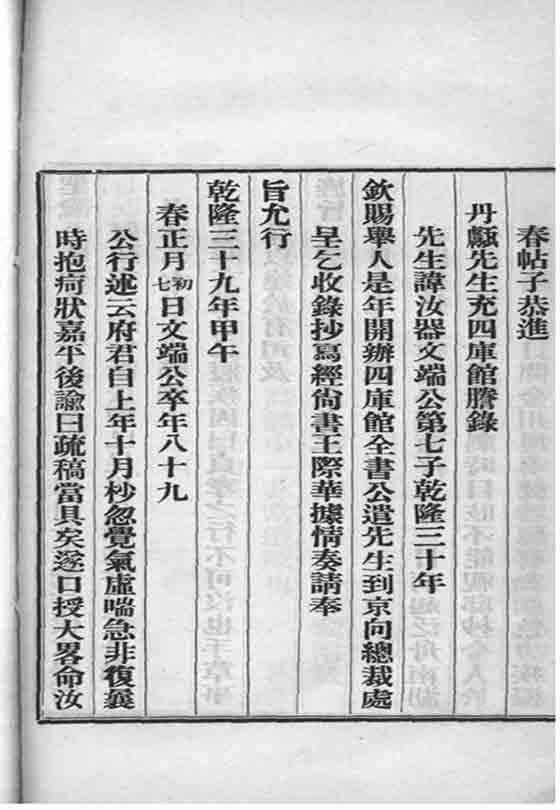 春帖子恭進
丹𤅬先生充四庫館謄錄
先生諱汝器文端公第七子乾隆三十年
欽賜舉人是年開辦四庫館全書公遣先生到京向總裁處
呈乞收錄抄寫經尙書王際華據情奏請奉
旨允行
乾隆三十九年甲午
春正月初七日文端公卒年八十九
公行述云府君自上年十月杪忽覺氣虛喘急非復曩
時抱疴狀嘉平後諭曰疏稿當具矣遂口授大畧命汝